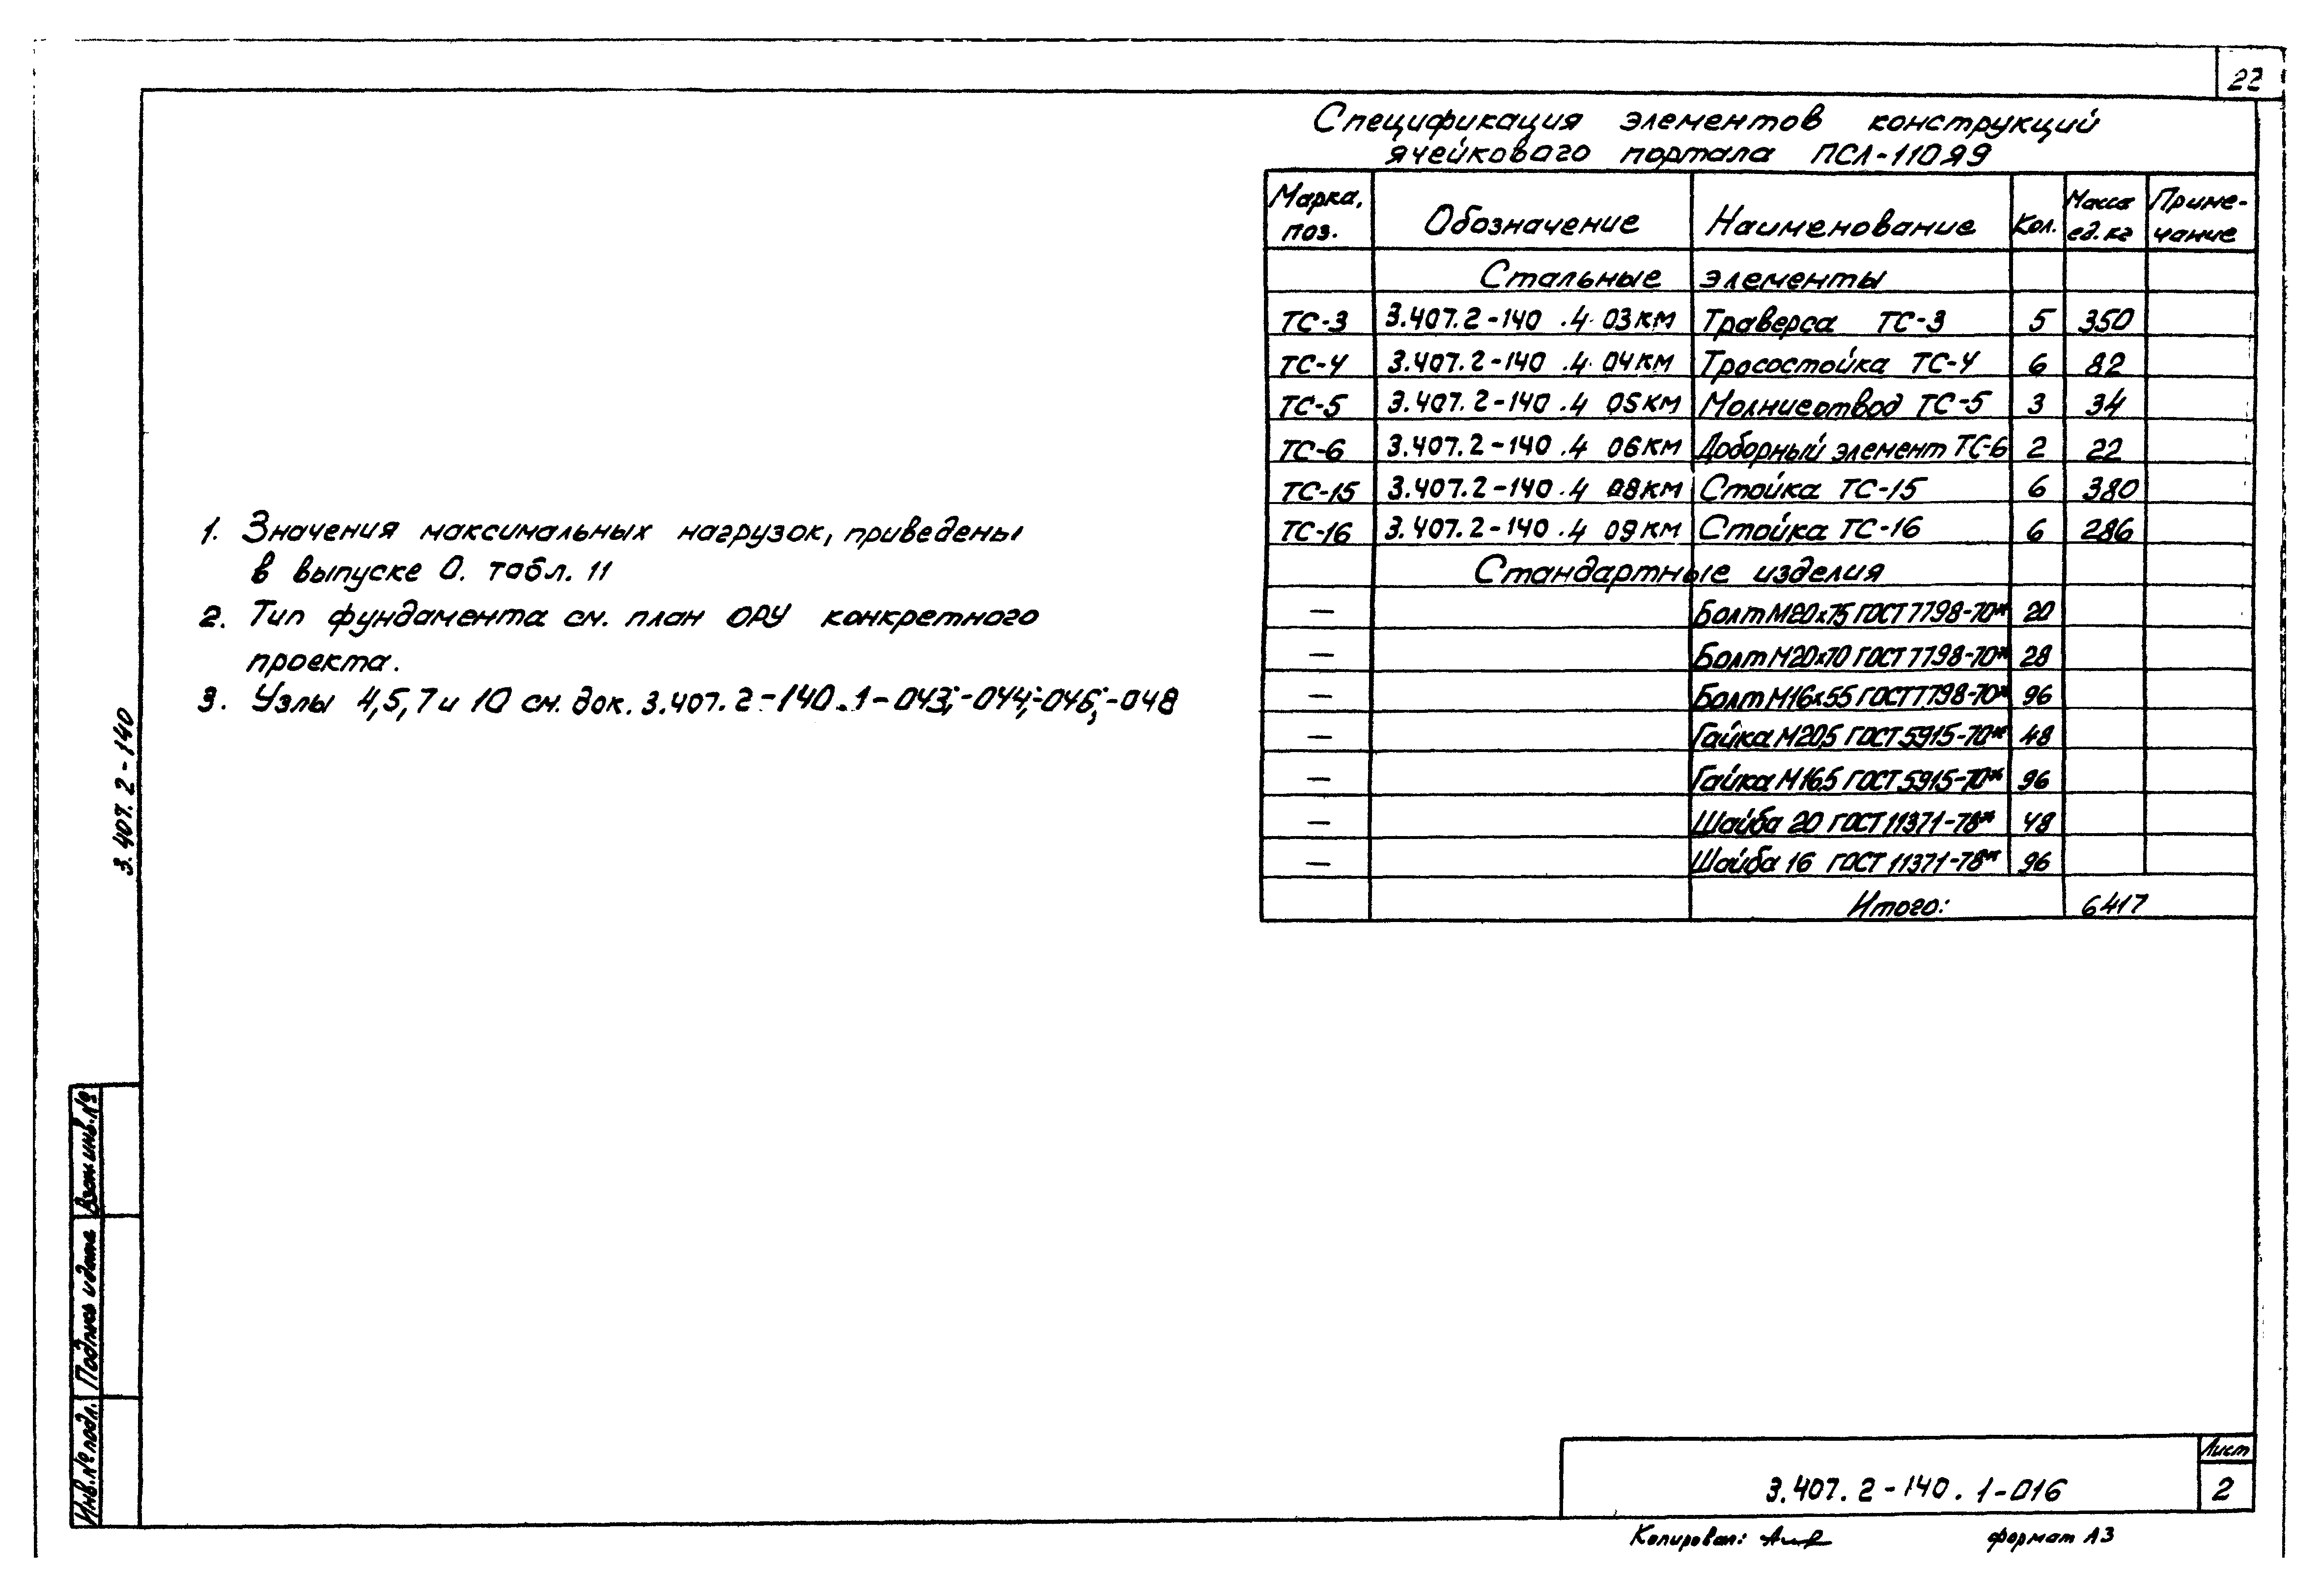 22
Спецификация элементов конструкций
ячейкового портала ПСЛ-110Я9
Марка, поз. Обозначение Наименование Кол. Масса ед. кг Приме-чание
Стальные элементы
ТС-3 3.407.2-140 .4 03КМ Траверса ТС-3 5 350
ТС-4 3.407.2-140 .4 04КМ Тросостойка ТС-4 6 82
ТС-5 3.407.2-140 .4 05КМ Молниеотвод ТС-5 3 34
ТС-6 3.407.2-140 .4 06КМ Доборный элемент ТС-6 2 22
ТС-15 3.407.2-140 .4 08КМ Стойка ТС-15 6 380
ТС-16 3.407.2-140 .4 09КМ Стойка ТС-16 6 286
Стандартные изделия
— Болт М20х75 ГОСТ 7798-70* 20
— Болт М20х70 ГОСТ 7798-70* 28
— Болт М16х55 ГОСТ 7798-70* 96
— Гайка М20.5 ГОСТ 5915-70* 48
— Гайка М16.5 ГОСТ 5915-70* 96
— Шайба 20 ГОСТ 11371-78* 48
— Шайба 16 ГОСТ 11371-78* 96
Итого: 6417
1. Значения максимальных нагрузок, приведены
в выпуске 0. табл. 11
2. Тип фундамента см. план ОРУ конкретного
проекта.
3. Узлы 4,5,7 и 10 см. док. 3.407.2-140.1-043;-044;-046;-048
3.407.2-140
Взам инв.№
Подпись и дата
Инв.№ подл.
3.407.2-140.1-016
Лист
2
Копировал:
формат А3